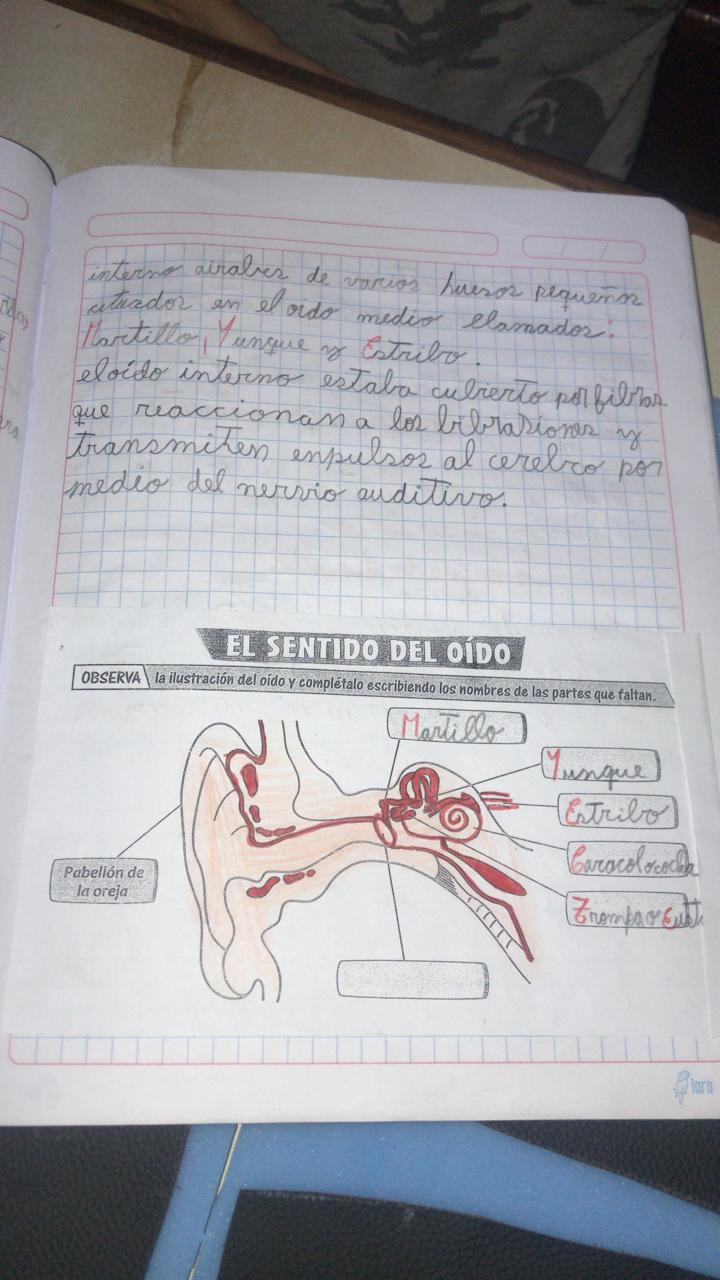 interno airabes de varios huesos pequeños
cituador en el oido medio llamados:
Martillo, Yunque y Estribo.
eloído interno estaba cubierto por fibras
que reaccionan a los bibrasiones y
transmiten enpulsos al cerebro por
medio del nervio auditivo.
EL SENTIDO DEL OÍDO
OBSERVA la ilustración del oído y complétalo escribiendo los nombres de las partes que faltan.
Martillo
Yunque
Estribo
Caracolococlea
Pabellón de
la oreja
Trompa
loro